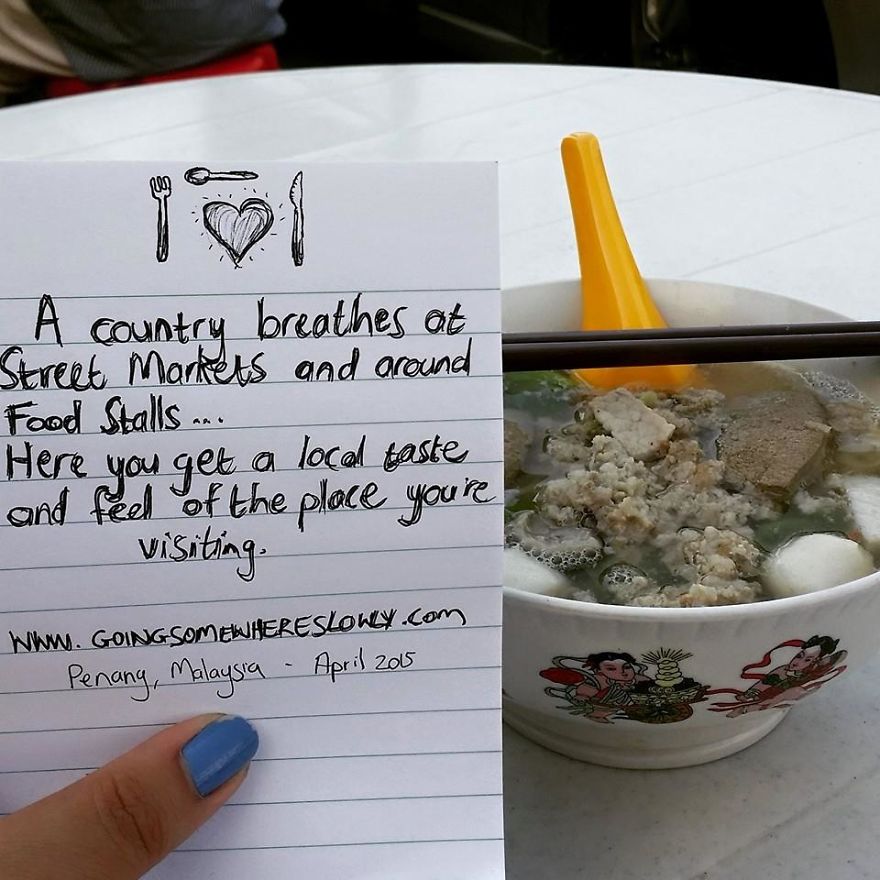 A country breathes at
Street Markets and around
Food Stalls...
Here you get a local taste
and feel of the place you're
visiting.
WWW.GOINGSOMEWHERESLOWLY.com
Penang, Malaysia - April 2015